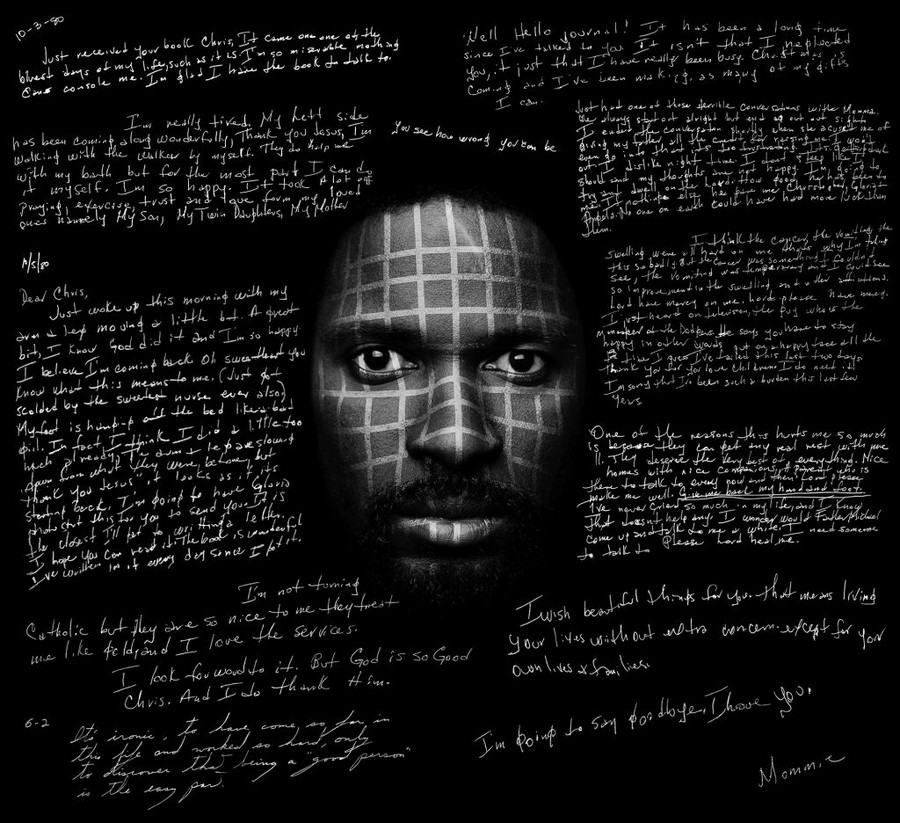 10-3-80
Just received your book Chris, It came one one of the
bluest days of my life, such as it is. I'm so miserable nothing
can console me. I'm glad I have the book to talk to.
I'm really tired. My left side
has been coming along wonderfully, Thank you Jesus, I'm
walking with the walker by myself. They do help me
with my bath but for the most part I can do
it myself. I'm so happy. It took a lot of
praying, exercise, trust and love from my loved
ones namely My Son, My Twin Daughters, My Mother
11/5/80
Dear Chris,
Just woke up this morning with my
arm & leg moving a little bit. A great
bit, I know God did it and I'm so happy
I believe I'm coming back. Oh sweetheart you
know what this means to me. (Just got
scolded by the sweetest nurse ever also)
My foot is hanging off the bed like a bad
girl. In fact I think I did a little too
much already. The arm & leg are slowing
down from what they were, but my
"thank you Jesus" it looks as if its
starting back. I'm going to have Gloria
photostat this for you to send you. It is
the closest I'll get to writing a letter.
I hope you can read it. The book is wonderful
I've written in it every day since I got it.
I'm not turning
Catholic but they are so nice to me they treat
me like gold, and I love the services.
I look forward to it. But God is so Good
Chris. And I do thank Him.
6-2
It's ironic, to have come, so far in
this life and worked so hard, only
to discover that being a "good person"
is the easy part.
You see how wrong you can be
Well Hello journal! It has been a long time
since I've talked to you. It isn't that I neglected
you, it just that I have really been busy. Christmas is
coming and I've been making, as many of my gifts
I can.
Just had one of those terrible conversations with Momma.
We always start out alright but end up out out sight
I ended the conversation shortly when she accused me of
giving my father all the credit for raising me. I won't
even go into that
out. I dislike night time. I don't sleep like I
should and my thoughts are not happy. I'm going to
try and dwell on the Lord. How good
me. If nothing else he gave me Christopher, Gloria
Angela. No one on earth could have had more love than
them.
I think the cancer, the vomiting, the
swelling were all hard on me
this so badly. But the cancer was something I couldn't
see, the vomiting was temporary and I could see
some improvement in the swelling and other situations.
Lord have mercy on me. Lord please have mercy.
I just heard on Jefferson, the guy who's the
manager at the
happy in other words put on a happy face all the
time I guess I've failed this last two days
Thank you for your love children. I do need it!
I'm sorry that I've been such a burden this last few
years
One of the reasons this hurts me so much
is because they can get any real rest with me
ill. They deserve the very best of everything. Nice
homes with nice companions, & parent who is
there to talk to every now and then. Lord please
make me well. Give me back my hand and foot.
I've never cried so much in my life, and I know
that doesn't help any. I wonder would Father Michael
come up and talk to me or write. I need someone
to talk to. Please Lord heal me.
I wish beautiful things for you. that means living
your lives without extra concern. except for your
own lives & families.
I'm going to say goodbye. I love you.
Mommie